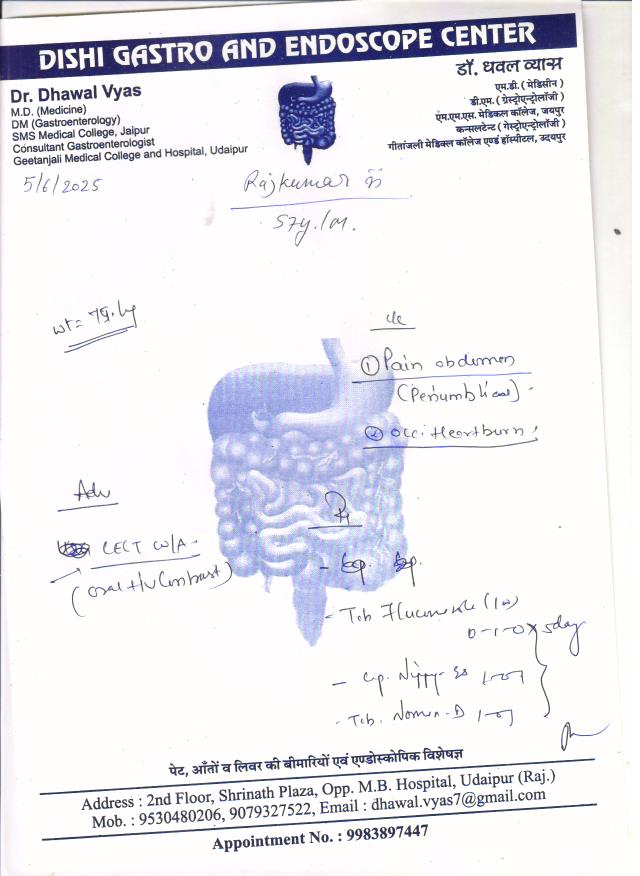 DISHI GASTRO AND ENDOSCOPE CENTER
Dr. Dhawal Vyas
M.D. (Medicine)
DM (Gastroenterology)
SMS Medical College, Jaipur
Consultant Gastroenterologist
Geetanjali Medical College and Hospital, Udaipur
डॉ. धवल व्यास
एम.डी. ( मेडिसीन )
डी.एम. ( गेस्ट्रोएन्ट्रोलॉजी )
एम.एम.एस. मेडिकल कॉलेज, जयपुर
कन्सलटेन्ट ( गेस्ट्रोएन्ट्रोलॉजी )
गीतांजली मेडिकल कॉलेज एण्ड हॉस्पीटल, उदयपुर
5/6/2025
Rajkumar
57y./M.
wt =
① Pain abdomen
(Periumblical)
② Occ. Heartburn
Adv
CECT W/A
(oral + Iv Contrast)
Rx
- Tab
0-1-0 x 5day
- Cap.
- Tab.
पेट, आँतों व लिवर की बीमारियों एवं एण्डोस्कोपिक विशेषज्ञ
Address : 2nd Floor, Shrinath Plaza, Opp. M.B. Hospital, Udaipur (Raj.)
Mob. : 9530480206, 9079327522, Email : dhawal.vyas7@gmail.com
Appointment No. : 9983897447